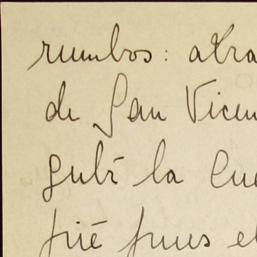 rumbos: atra
de San Vicen
Subí la Cue
pié pues el